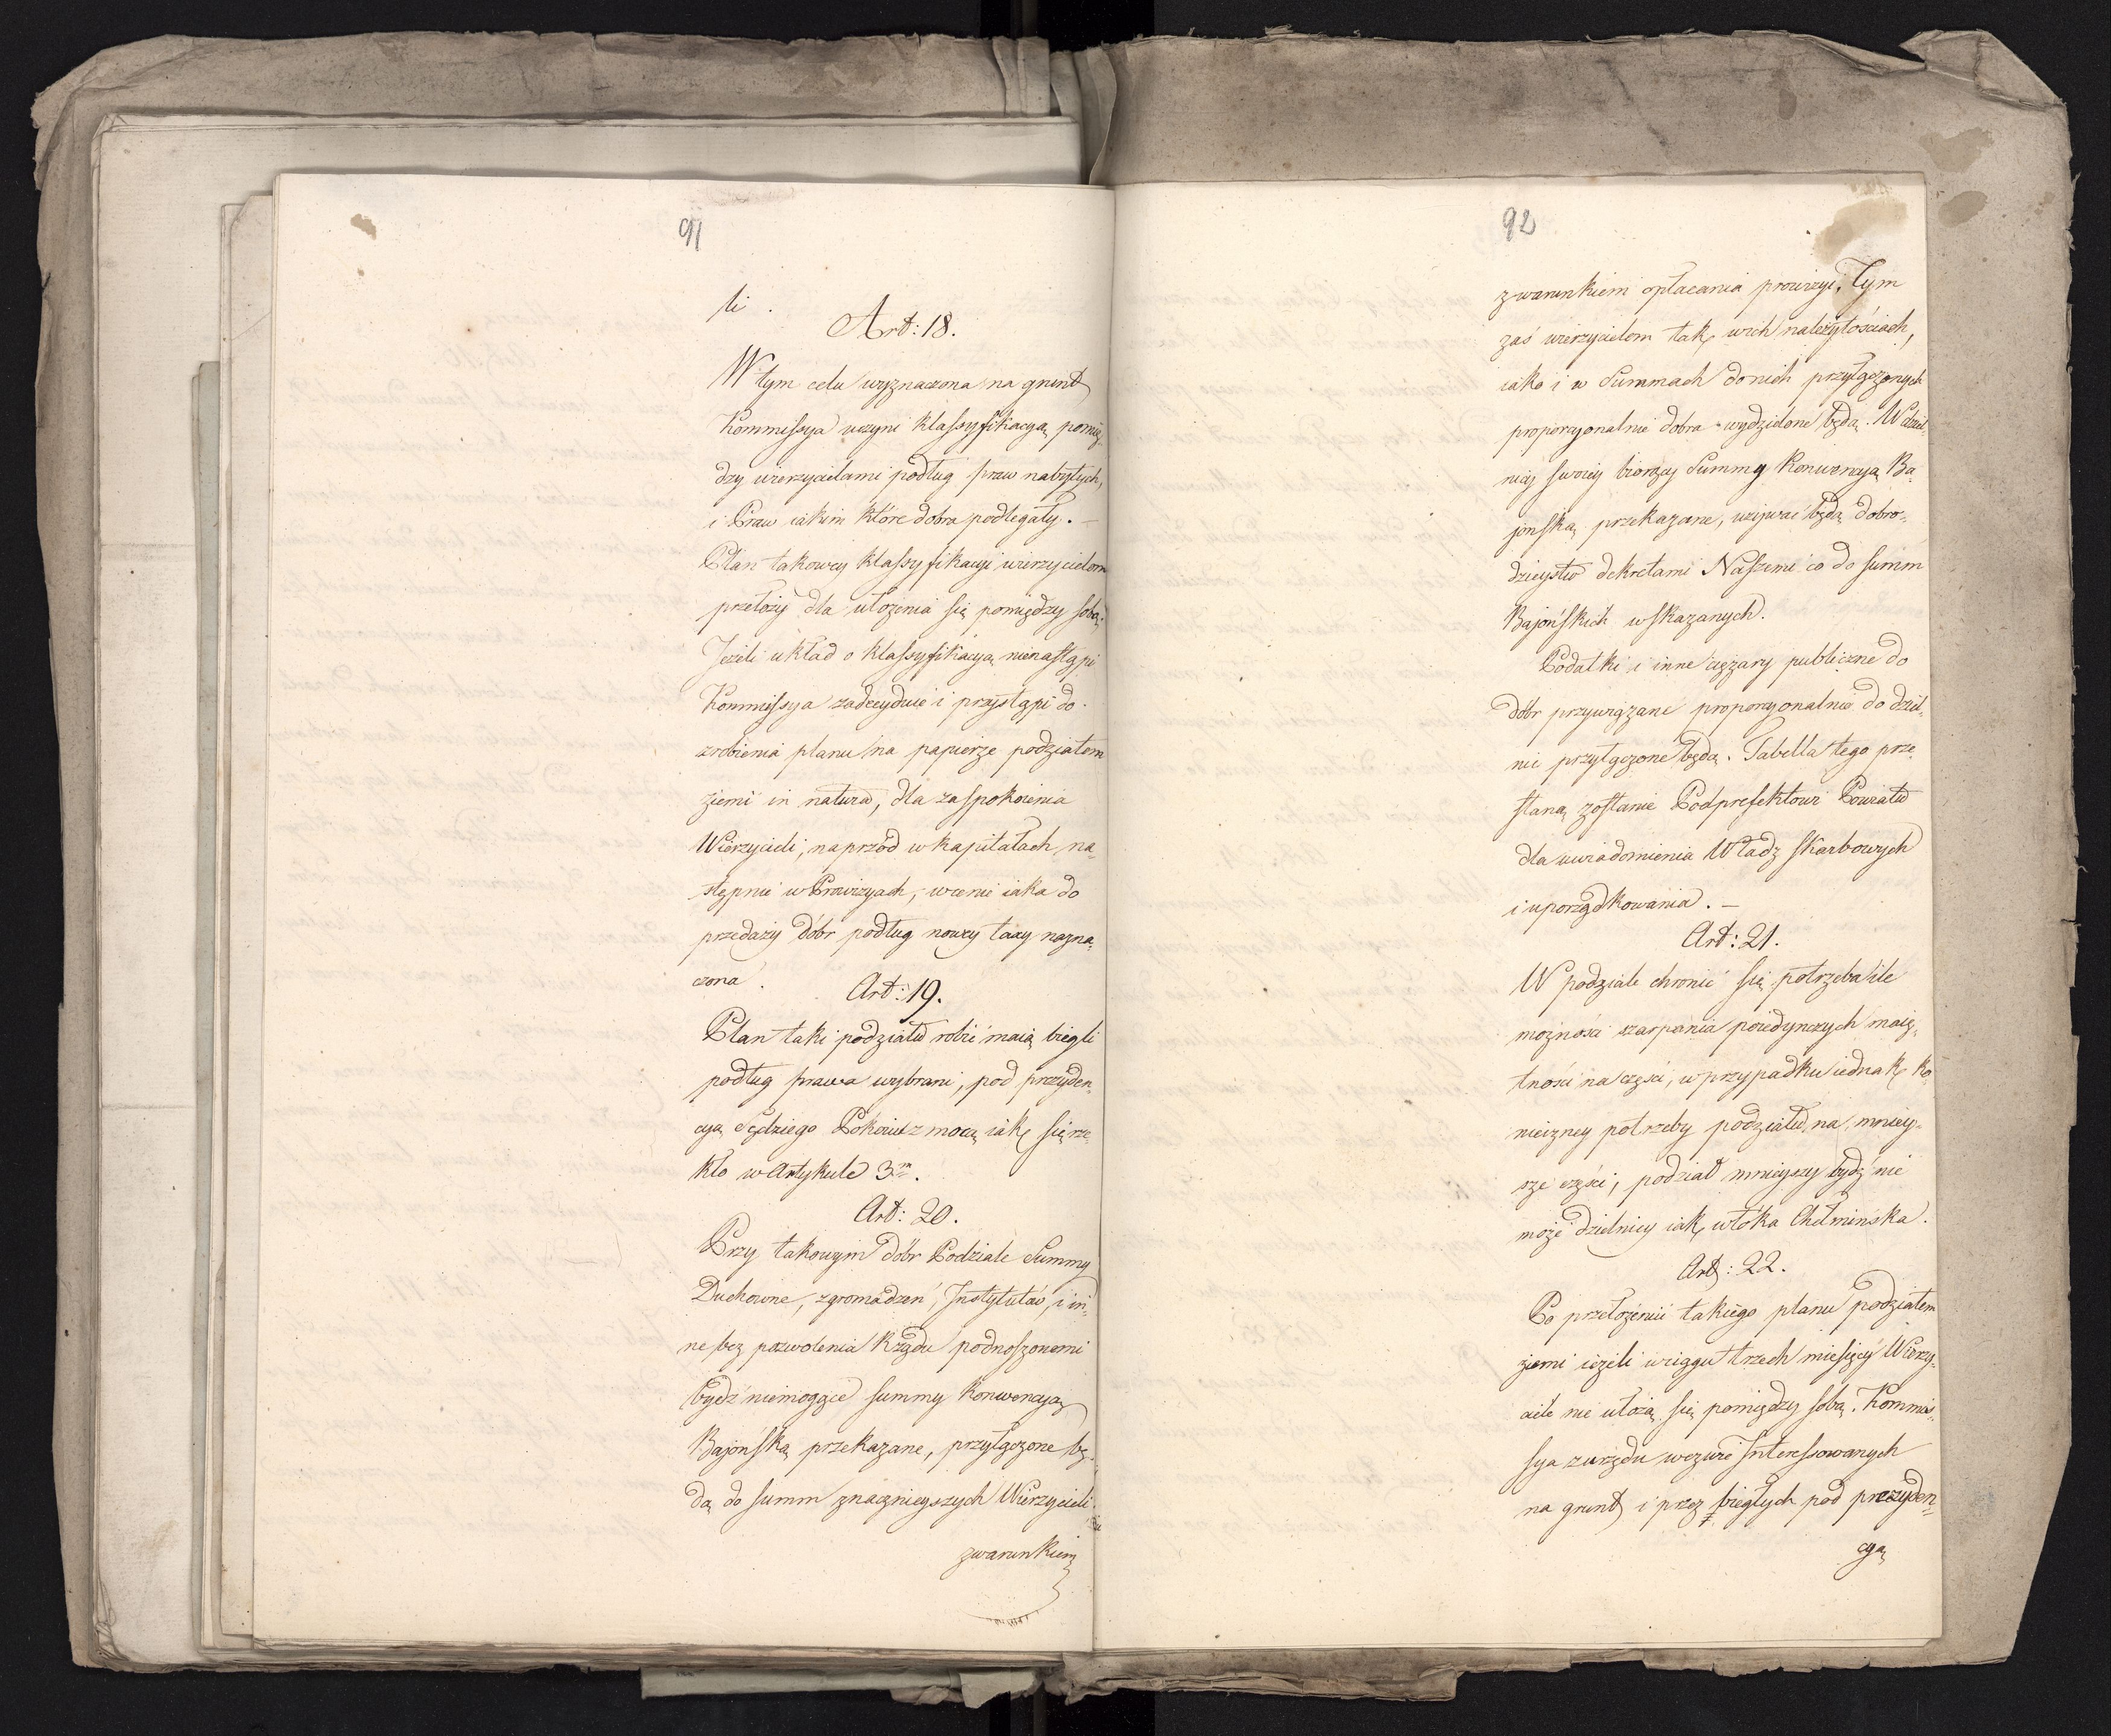 91
li.
Art: 18.
W tym celu wyznaczona na grunt
Kommissya uczyni klassyfikacyą pomię-
dzy wierzycielami podług praw nabytych,
i Praw iakim które dobra podlegały. –
Plan takowey klassyfikacyi wierzycielom
przełoży dla ułożenia się pomiędzy sobą;
Jeżeli układ o klassyfikacyą nienastąpi
Kommissya zadecyduie i przystąpi do
zrobienia planu na papierze podziałem
ziemi in natura, dla zaspokoienia
Wierzycieli, naprzód w kapitałach, na-
stępnie w Prowizyach, w cenie iaka do
przedaży dóbr podług nowey taxy nazna-
czona.
Art: 19.
Plan taki podziału robić maią biegli
podług prawa wybrani, pod prezyden
cyą Sędziego Pokoiu z mocą iak się rze
kło w Artykule 3m.
Art: 20.
Przy takowym dóbr Podziale Summy
Duchowne, zgromadzeń, Instytutów, i in-
ne bez pozwolenia Rządu podnoszonemi
bydź niemogące summy Konwencyą
Bajońską przekazane, przyłączone bę-
dą do summ znacznieyszych Wierzycieli
zwarunkiem
92
zwarunkiem opłacania prowizyi, Tym
zaś wierzycielom tak wich należytościach,
iako i w Summach donich przyłączonych
proporcyonalnie dobra wydzielone będą. W dziel-
nicy swoiey biorący Summy Konwencyą Ba-
jonską przekazane, używać będą dobro-
dzieystw dekretami Naszemi co do summ
Bajońskich wskazanych.
Podatki i inne ciężary publiczne do
dóbr przywiązane proporcyonalnie do dziel-
nic przyłączone będą. Tabella tego prze
słaną zostanie Podprefektowi Powiatu
dla uwiadomienia Władz skarbowych
i uporządkowania. –
Art: 21.
W podziale chronić się potrzeba ile
możności szarpania poiedynczych maię-
tności na części, w przypadku iednak ko-
nieczney potrzeby podziału na mniey-
sze części, podział mnieyszy bydź nie
może dzielnicy iak włóka Chełminska.
Art: 22.
Po przełożeniu takiego planu podziałem
ziemi ieżeli wciągu trzech miesięcy Wierzy-
ciele nie ułożą się pomiędzy sobą. Kommis-
sya zurzędu wezwie Interessowanych
na grunt i przez biegłych pod prezyden-
cyą